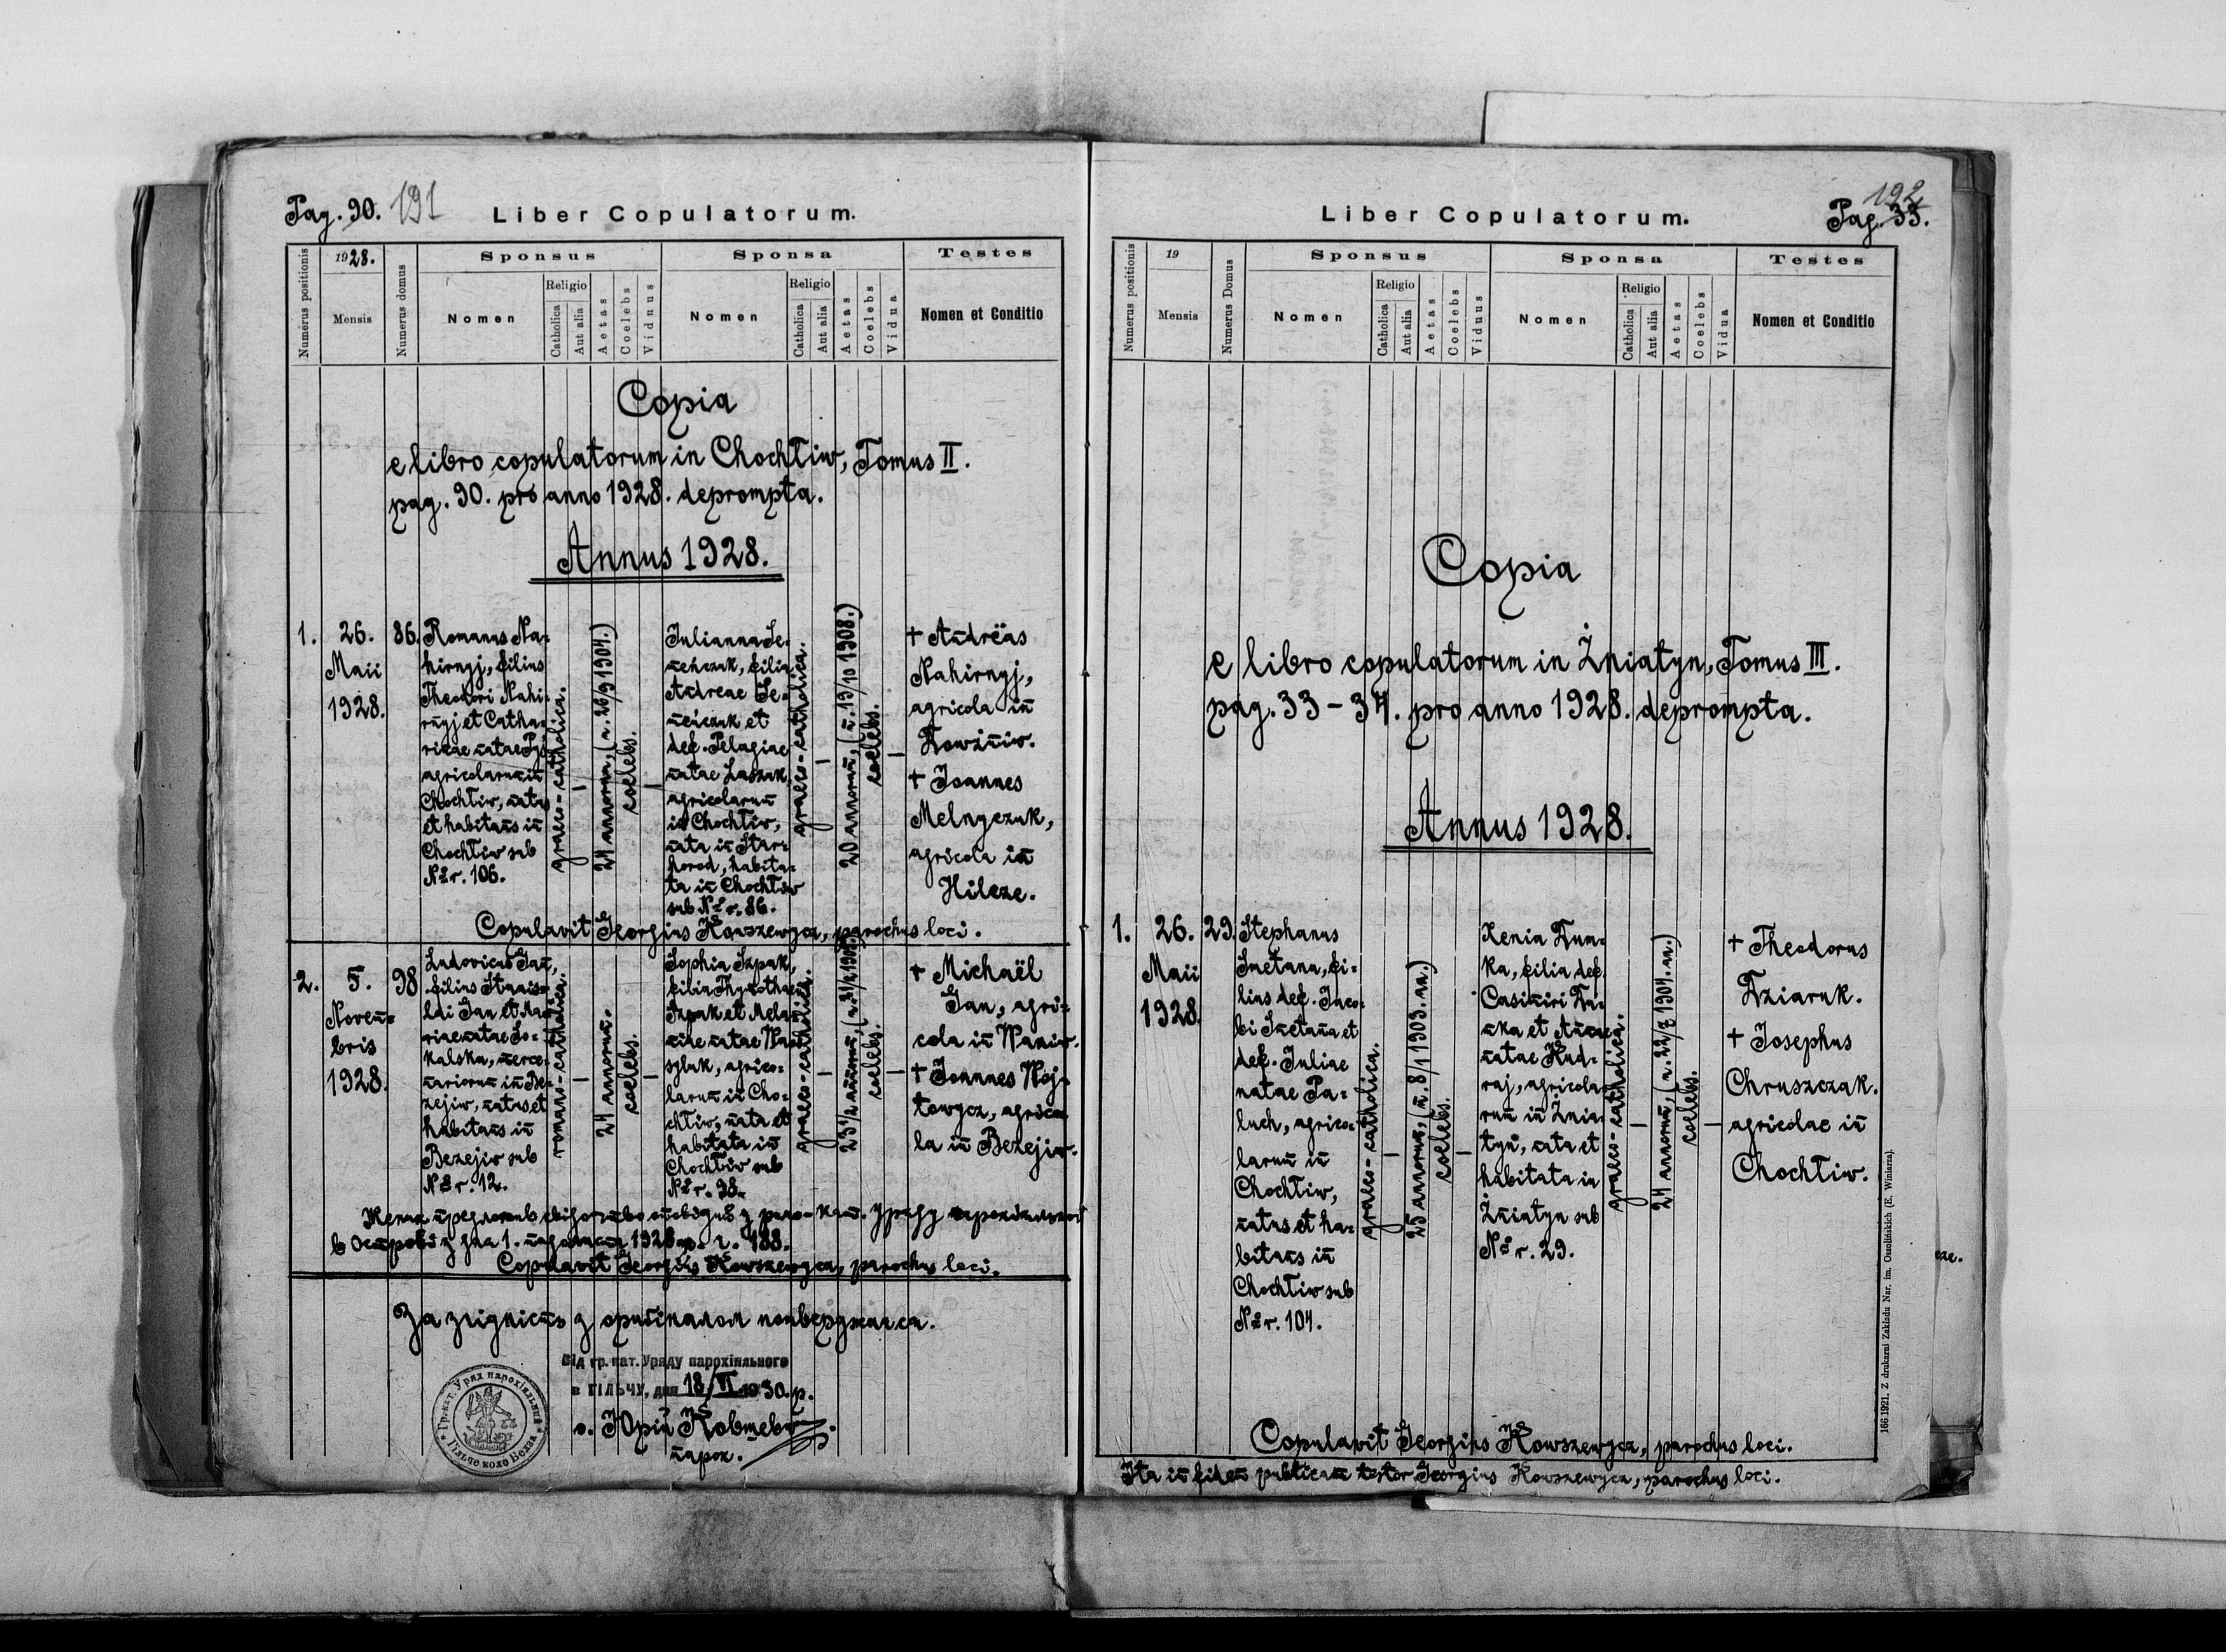 Pag. 90. 191
Liber Copulatorum.
Numerus positionis
1928.
Mensis
Numerus domus
Sponsus
Nomen
Religio
Catholica
Aut alia
Aetas
Coelebs
Viduus
Sponsa
Nomen
Religio
Catholica
Aut alia
Aetas
Coelebs
Vidua
Testes
Nomen et Conditio
Copia
e libro copulatorum in Chochłiw, Tomus II.
pag. 90. pro anno 1928. deprompta.
Annus 1928.
1.
26.
Maii
1928.
86.
Romanus Na-
hirnyj, filius
Theodori Nahi-
rnyj et Catha-
rinae natae
agricolarum in
Chochłiw, natus
et habitans in
Chochłiw sub
Nr. 106.
graeco-catholica.
—
24 annorum, (n. 26/9 1904.)
coelebs.
—
Julianna Se-
neńczuk, filia
Andreae Se-
neńczuk et
def. Pelagiae
natae Laszuk,
agricolarum
in Chochłiw,
nata in Star-
horod, habita-
ta in Chochłiw
sub Nr. 86.
graeco-catholica.
—
20 annorum, (n. 19/10 1908.)
coelebs.
—
+ Andrëas
Nahirnyj,
agricola in
Łowźniw.
+ Joannes
Melnyczuk,
agricola in
Hilcze.
Copulavit Georgius Kowszewycz, parochus loci.
2.
5.
Novem-
bris
1928.
98
Ludovicus Gan,
filius Stanis-
lai Gan et Ma-
riae natae So-
kalska, merce-
nariorum in Be-
zejiw, natus et
habitans in
Bezejiw sub
Nr. 12.
romano-catholica.
—
24 annorum.
coelebs.
—
Sophia Szpak,
filia Thymothaei
Szpak et Mela-
niae natae Wa-
syluk, agrico-
larum in Cho-
chłiw, nata et
habitata in
Chochłiw sub
Nr. 98.
graeco-catholica.
—
23 1/2 annorum,
coelebs.
—
+ Michaël
Gan, agri-
cola in Waniw.
+ Joannes Woj-
towycz, agrico-
la in Bezejiw.
Жених предложив свідоцтво оповідий з римо-кат. уряду парохіяльного
в Острові з дня 1. падолиста 1928 р. ч. 188.
Copulavit Georgius Kowszewycz, parochus loci.
За згідність з оригіналом потверджається.
Від гр. кат. Уряду парохіяльного
в ГІЛЬЧУ, дня 18/VI 1930. р.
о. Юрій Ковшевич
парох.
Гр.-кат. Уряд парохіяльний
Гільче коло Белза
Liber Copulatorum.
192
Pag. 33.
Numerus positionis
19
Mensis
Numerus Domus
Sponsus
Nomen
Religio
Catholica
Aut alia
Aetas
Coelebs
Viduus
Sponsa
Nomen
Religio
Catholica
Aut alia
Aetas
Coelebs
Vidua
Testes
Nomen et Conditio
Copia
e libro copulatorum in Żniatyn, Tomus III.
pag. 33 – 34. pro anno 1928. deprompta.
Annus 1928.
1.
26.
Maii
1928.
29.
Stephanus
Smetana, fi-
lius def. Jaco-
bi Smetana et
def. Juliae
natae Pa-
luch, agrico-
larum in
Chochłiw,
natus et ha-
bitans in
Chochłiw sub
Nr. 104.
graeco-catholica.
—
25 annorum, (n. 8/1 1903. an.)
coelebs.
—
Xenia Dun-
ka, filia def.
Casimiri Du-
nka et Annae
natae Kud-
raj, agricola-
rum in Żnia-
tyn, nata et
habitata in
Żniatyn sub
Nr. 29.
graeco-catholica.
—
24 annorum, (n. 22/3 1904. an.)
coelebs.
—
+ Theodorus
Dziaruk.
+ Josephus
Chruszczak.
agricolae in
Chochłiw.
Copulavit Georgius Kowszewycz, parochus loci.
Ita in fidem publicam testor Georgius Kowszewycz, parochus loci.
166.1921. Z drukarni Zakładu Nar. im. Ossolińskich (E. Winiarza).